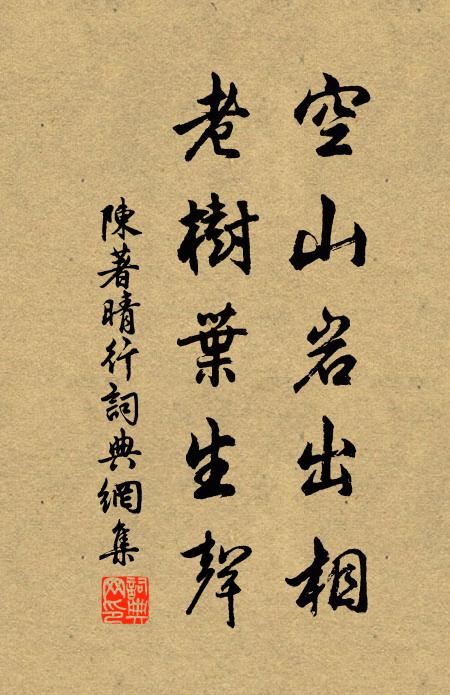 空山岩出相
老樹葉生聲
陳著晴行詞典網集
詞典網印